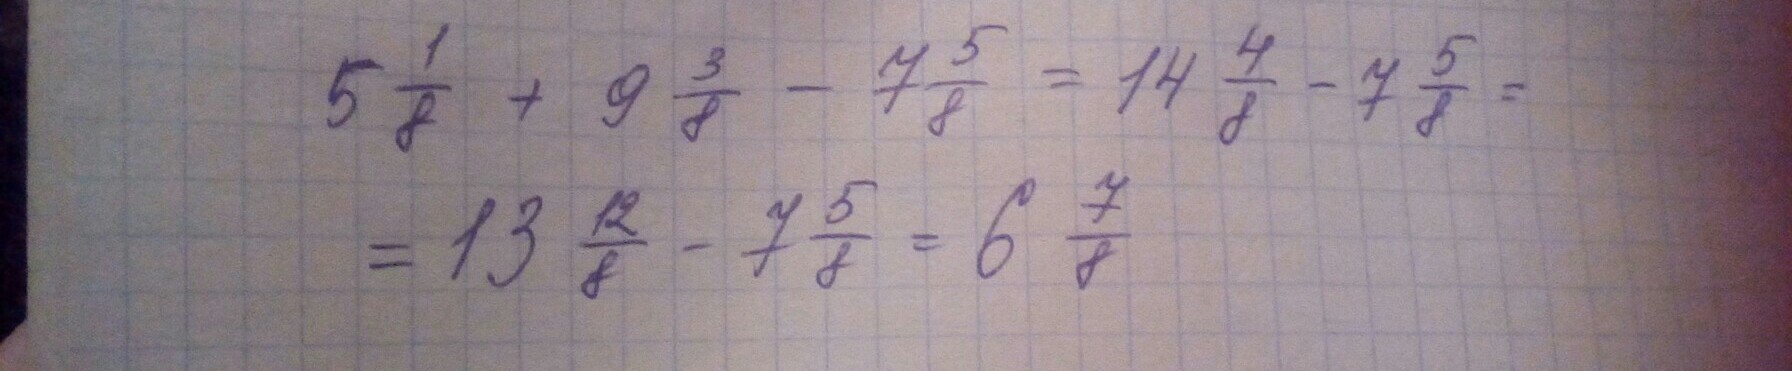 5 1/8 + 9 3/8 - 7 5/8 = 14 4/8 - 7 5/8 =
= 13 12/8 - 7 5/8 = 6 7/8